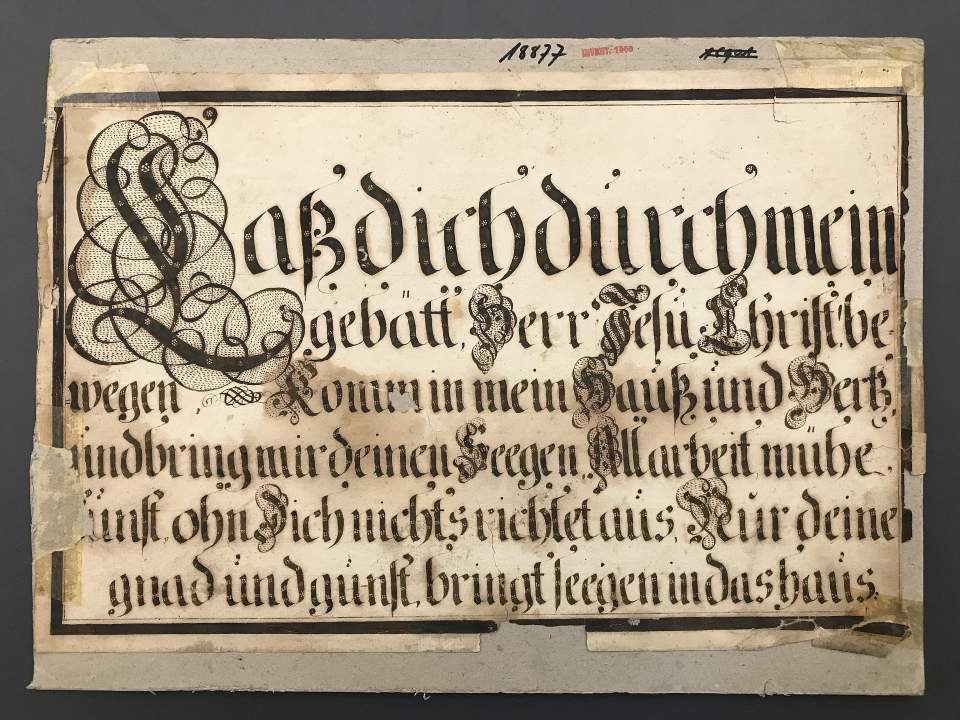 18877 INVENT. 1960
Laß dich durch mein
gebätt, Herr Jesu Christ be-
wegen, Komm in mein Hauß und Hertz,
und bring mir deinen Seegen, All arbeit mühe
kunst, ohn Dich nichts richtet aus, Nur deine
gnad und gunst, bringt seegen in das haus.